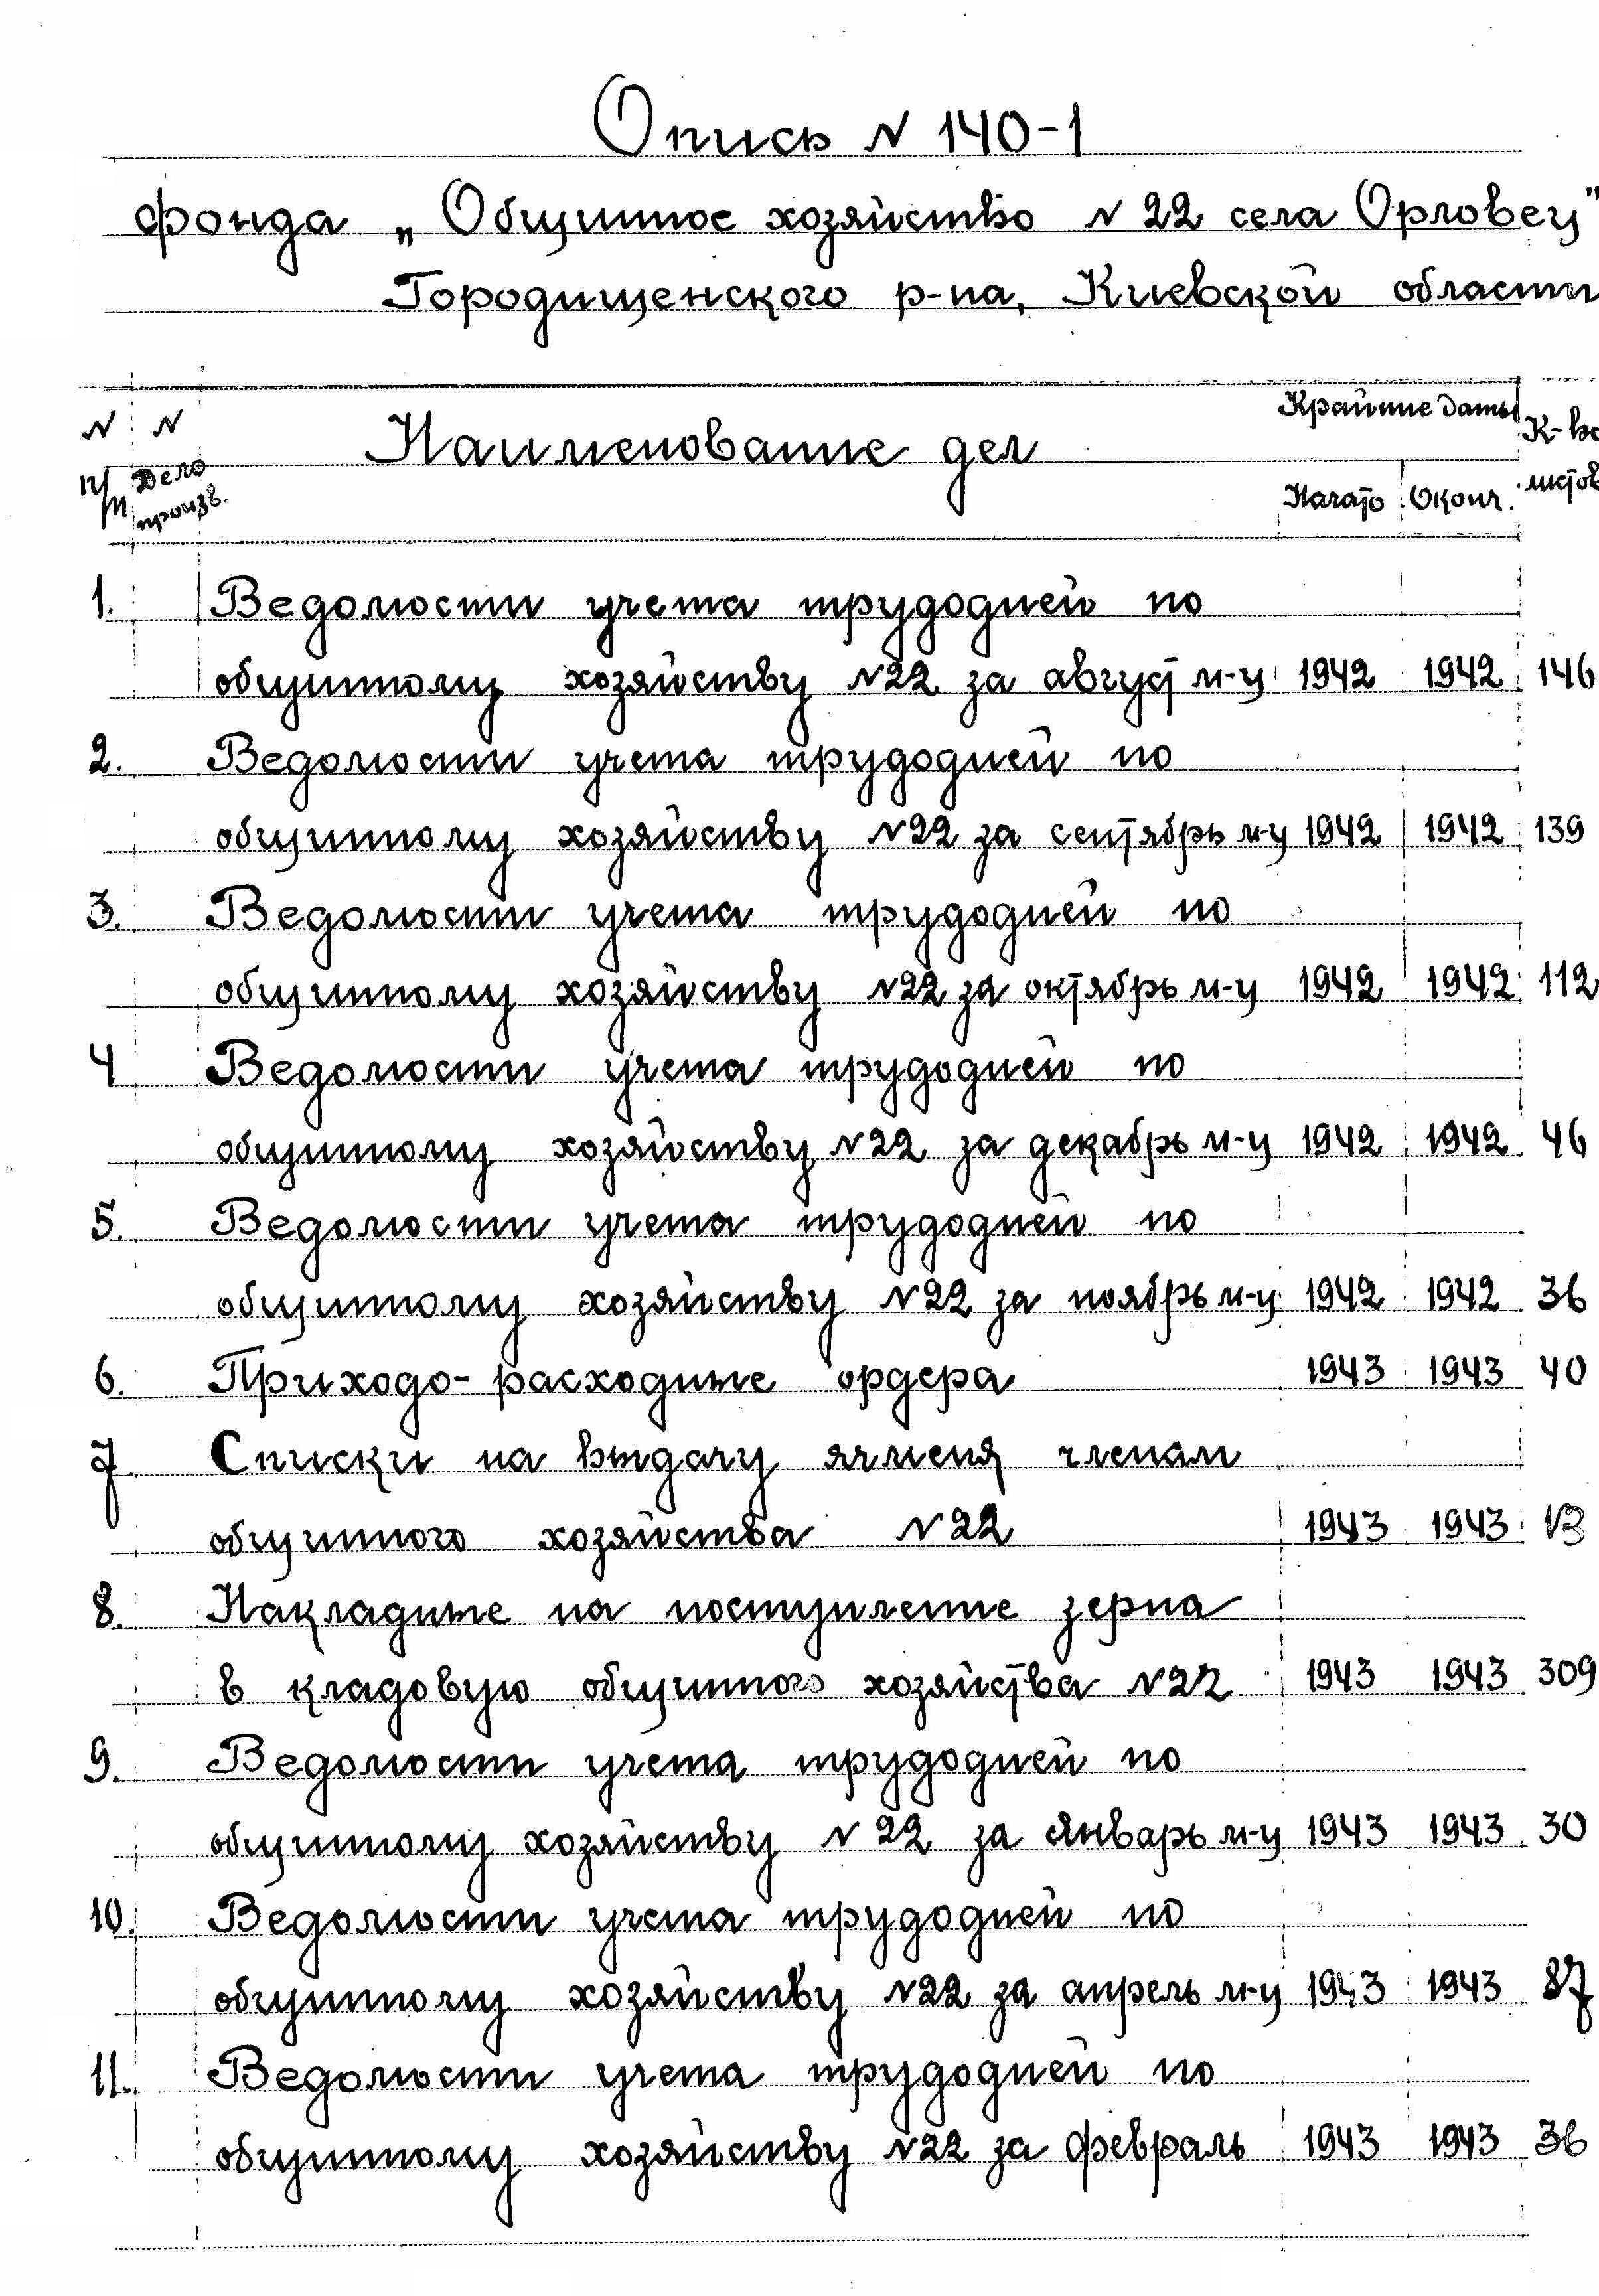 Опись N 140-1
фонда „Общинное хозяйство N 22 села Орловец"
Городищенского р-на, Киевской области
N N Наименование дел Крайние даты К-во
п/п Дело произв. Начато Оконч. листов
1. Ведомости учета трудодней по
общинному хозяйству N22 за август м-ц 1942 1942 146
2. Ведомости учета трудодней по
общинному хозяйству N22 за сентябрь м-ц 1942 1942 139
3. Ведомости учета трудодней по
общинному хозяйству N22 за октябрь м-ц 1942 1942 112
4 Ведомости учета трудодней по
общинному хозяйству N22 за декабрь м-ц 1942 1942 46
5. Ведомости учета трудодней по
общинному хозяйству N22 за ноябрь м-ц 1942 1942 36
6. Приходо-расходные ордера 1943 1943 40
7 Списки на выдачу ячменя членам
общинного хозяйства N22 1943 1943 13
8. Накладные на поступление зерна
в кладовую общинного хозяйства N22 1943 1943 309
9. Ведомости учета трудодней по
общинному хозяйству N 22 за январь м-ц 1943 1943 30
10. Ведомости учета трудодней по
общинному хозяйству N22 за апрель м-ц 1943 1943 87
11. Ведомости учета трудодней по
общинному хозяйству N22 за февраль 1943 1943 36